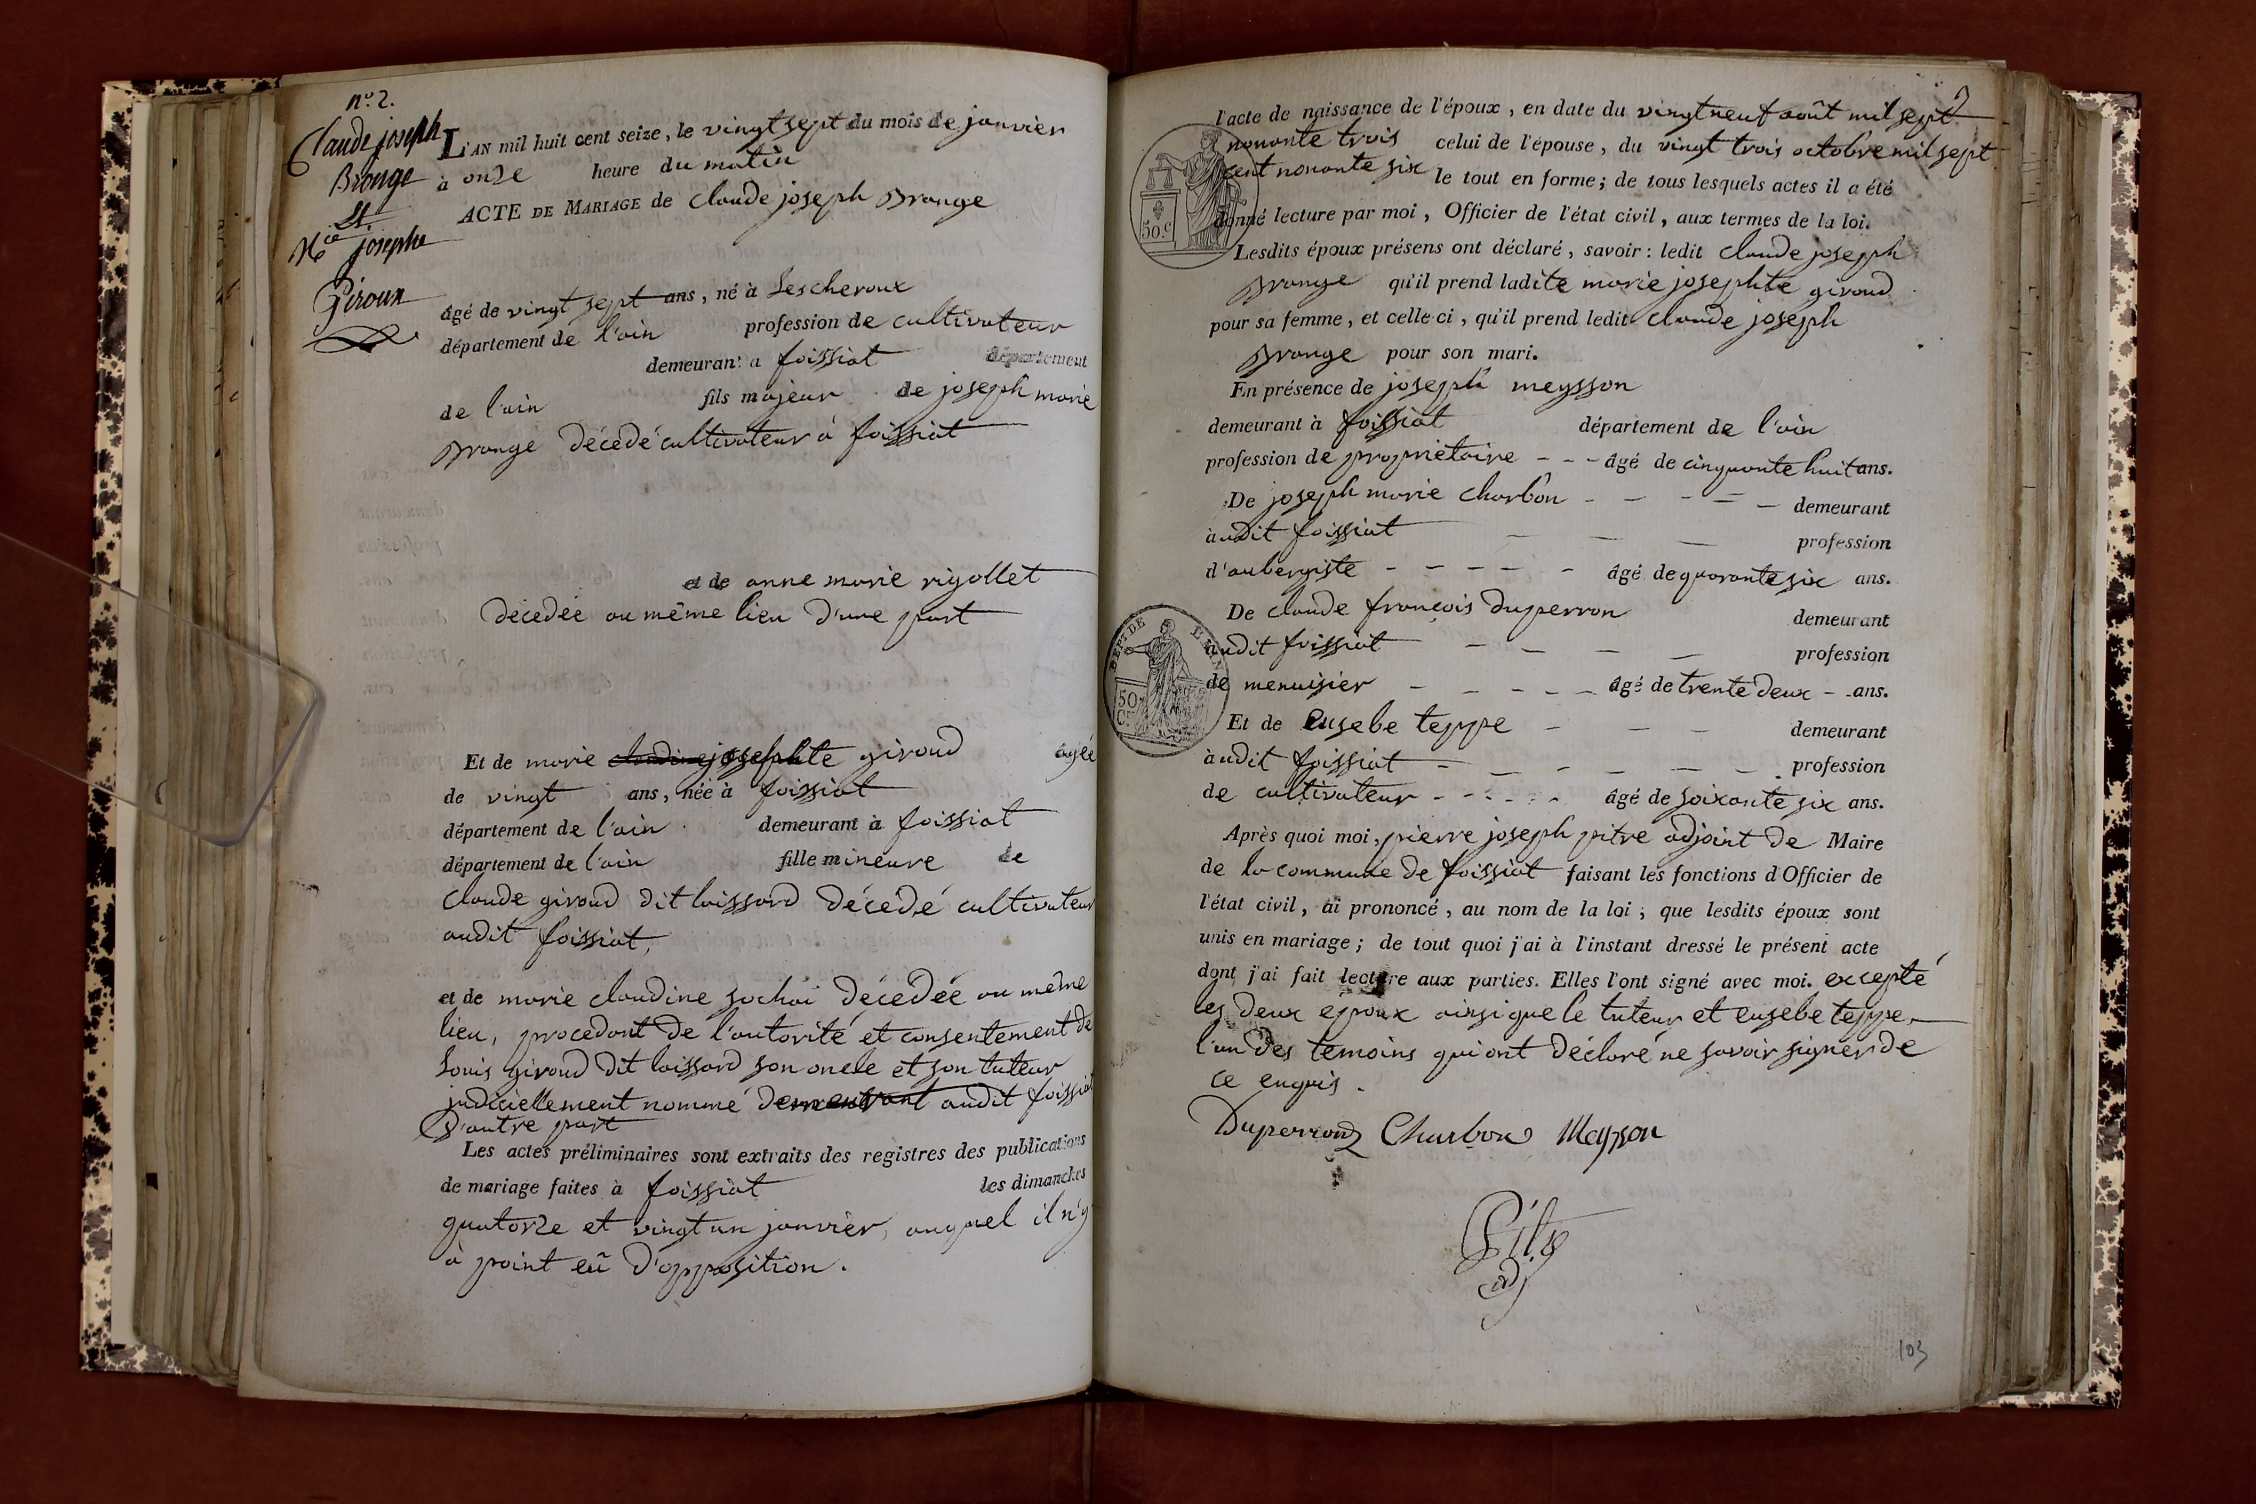 n.º 2.
Claude joseph
Brange
et
M.ie josephe
Giroux
L'AN mil huit cent seize, le vingt sept du mois de janvier
à onze heure du matin
ACTE DE MARIAGE de Claude joseph Brange
âgé de vingt sept ans, né à Lescheroux
département de l'ain profession de cultivateur
demeurant a foissiat département
de l'ain fils majeur de joseph marie
Brange décedé cultivateur à foissiat
et de anne marie rigollet
décedée au même lieu d'une part
Et de marie josephte giroud âgée
de vingt ans, née à foissiat
département de l'ain demeurant à foissiat
département de l'ain fille mineure de
Claude giroud dit loissard décedé cultivateur
audit foissiat,
et de marie claudine sochai décedée au même
lieu, procedant de l'autorité et consentement de
Louis giroud dit loissard son oncle et son tuteur
judiciellement nommé demeurant audit foissiat
d'autre part
Les actes préliminaires sont extraits des registres des publications
de mariage faites à foissiat les dimanches
quatorze et vingt un janvier, auquel il n'y
à point eû d'opposition.
2
l'acte de naissance de l'époux, en date du vingt neuf août mil sept
nonante trois celui de l'épouse, du vingt trois octobre mil sept
cent nonante six le tout en forme; de tous lesquels actes il a été
donné lecture par moi, Officier de l'état civil, aux termes de la loi.
50.c
Lesdits époux présens ont déclaré, savoir: ledit Claude joseph
Brange qu'il prend ladite marie josephte giroud
pour sa femme, et celle-ci, qu'il prend ledit Claude joseph
Brange pour son mari.
En présence de joseph meysson
demeurant à foissiat département de l'ain
profession de propriétaire - - - âgé de cinquante huit ans.
De joseph marie Charbon - - - - - demeurant
àudit foissiat - - - profession
d'aubergiste - - - - - âgé de quarante six ans.
De Claude françois Duperron demeurant
audit foissiat - - - - - profession
de menuisier - - - - - âgé de trente deux - - ans.
DEP.T DE L'AIN
50
C.
Et de Eusebe teppe - - - demeurant
àudit foissiat - - - - - - profession
de cultivateur - - - - - âgé de soixante six ans.
Après quoi moi, pierre joseph pitre adjoint de Maire
de la commune de foissiat faisant les fonctions d'Officier de
l'état civil, ai prononcé, au nom de la loi, que lesdits époux sont
unis en mariage; de tout quoi j'ai à l'instant dressé le présent acte
dont j'ai fait lecture aux parties. Elles l'ont signé avec moi. excepté
les deux epoux ainsi que le tuteur et eusebe teppe,
l'un des temoins qui ont déclaré ne savoir signer de
ce enquis.
Duperron Charbon Meysson
Pitre
adj
103